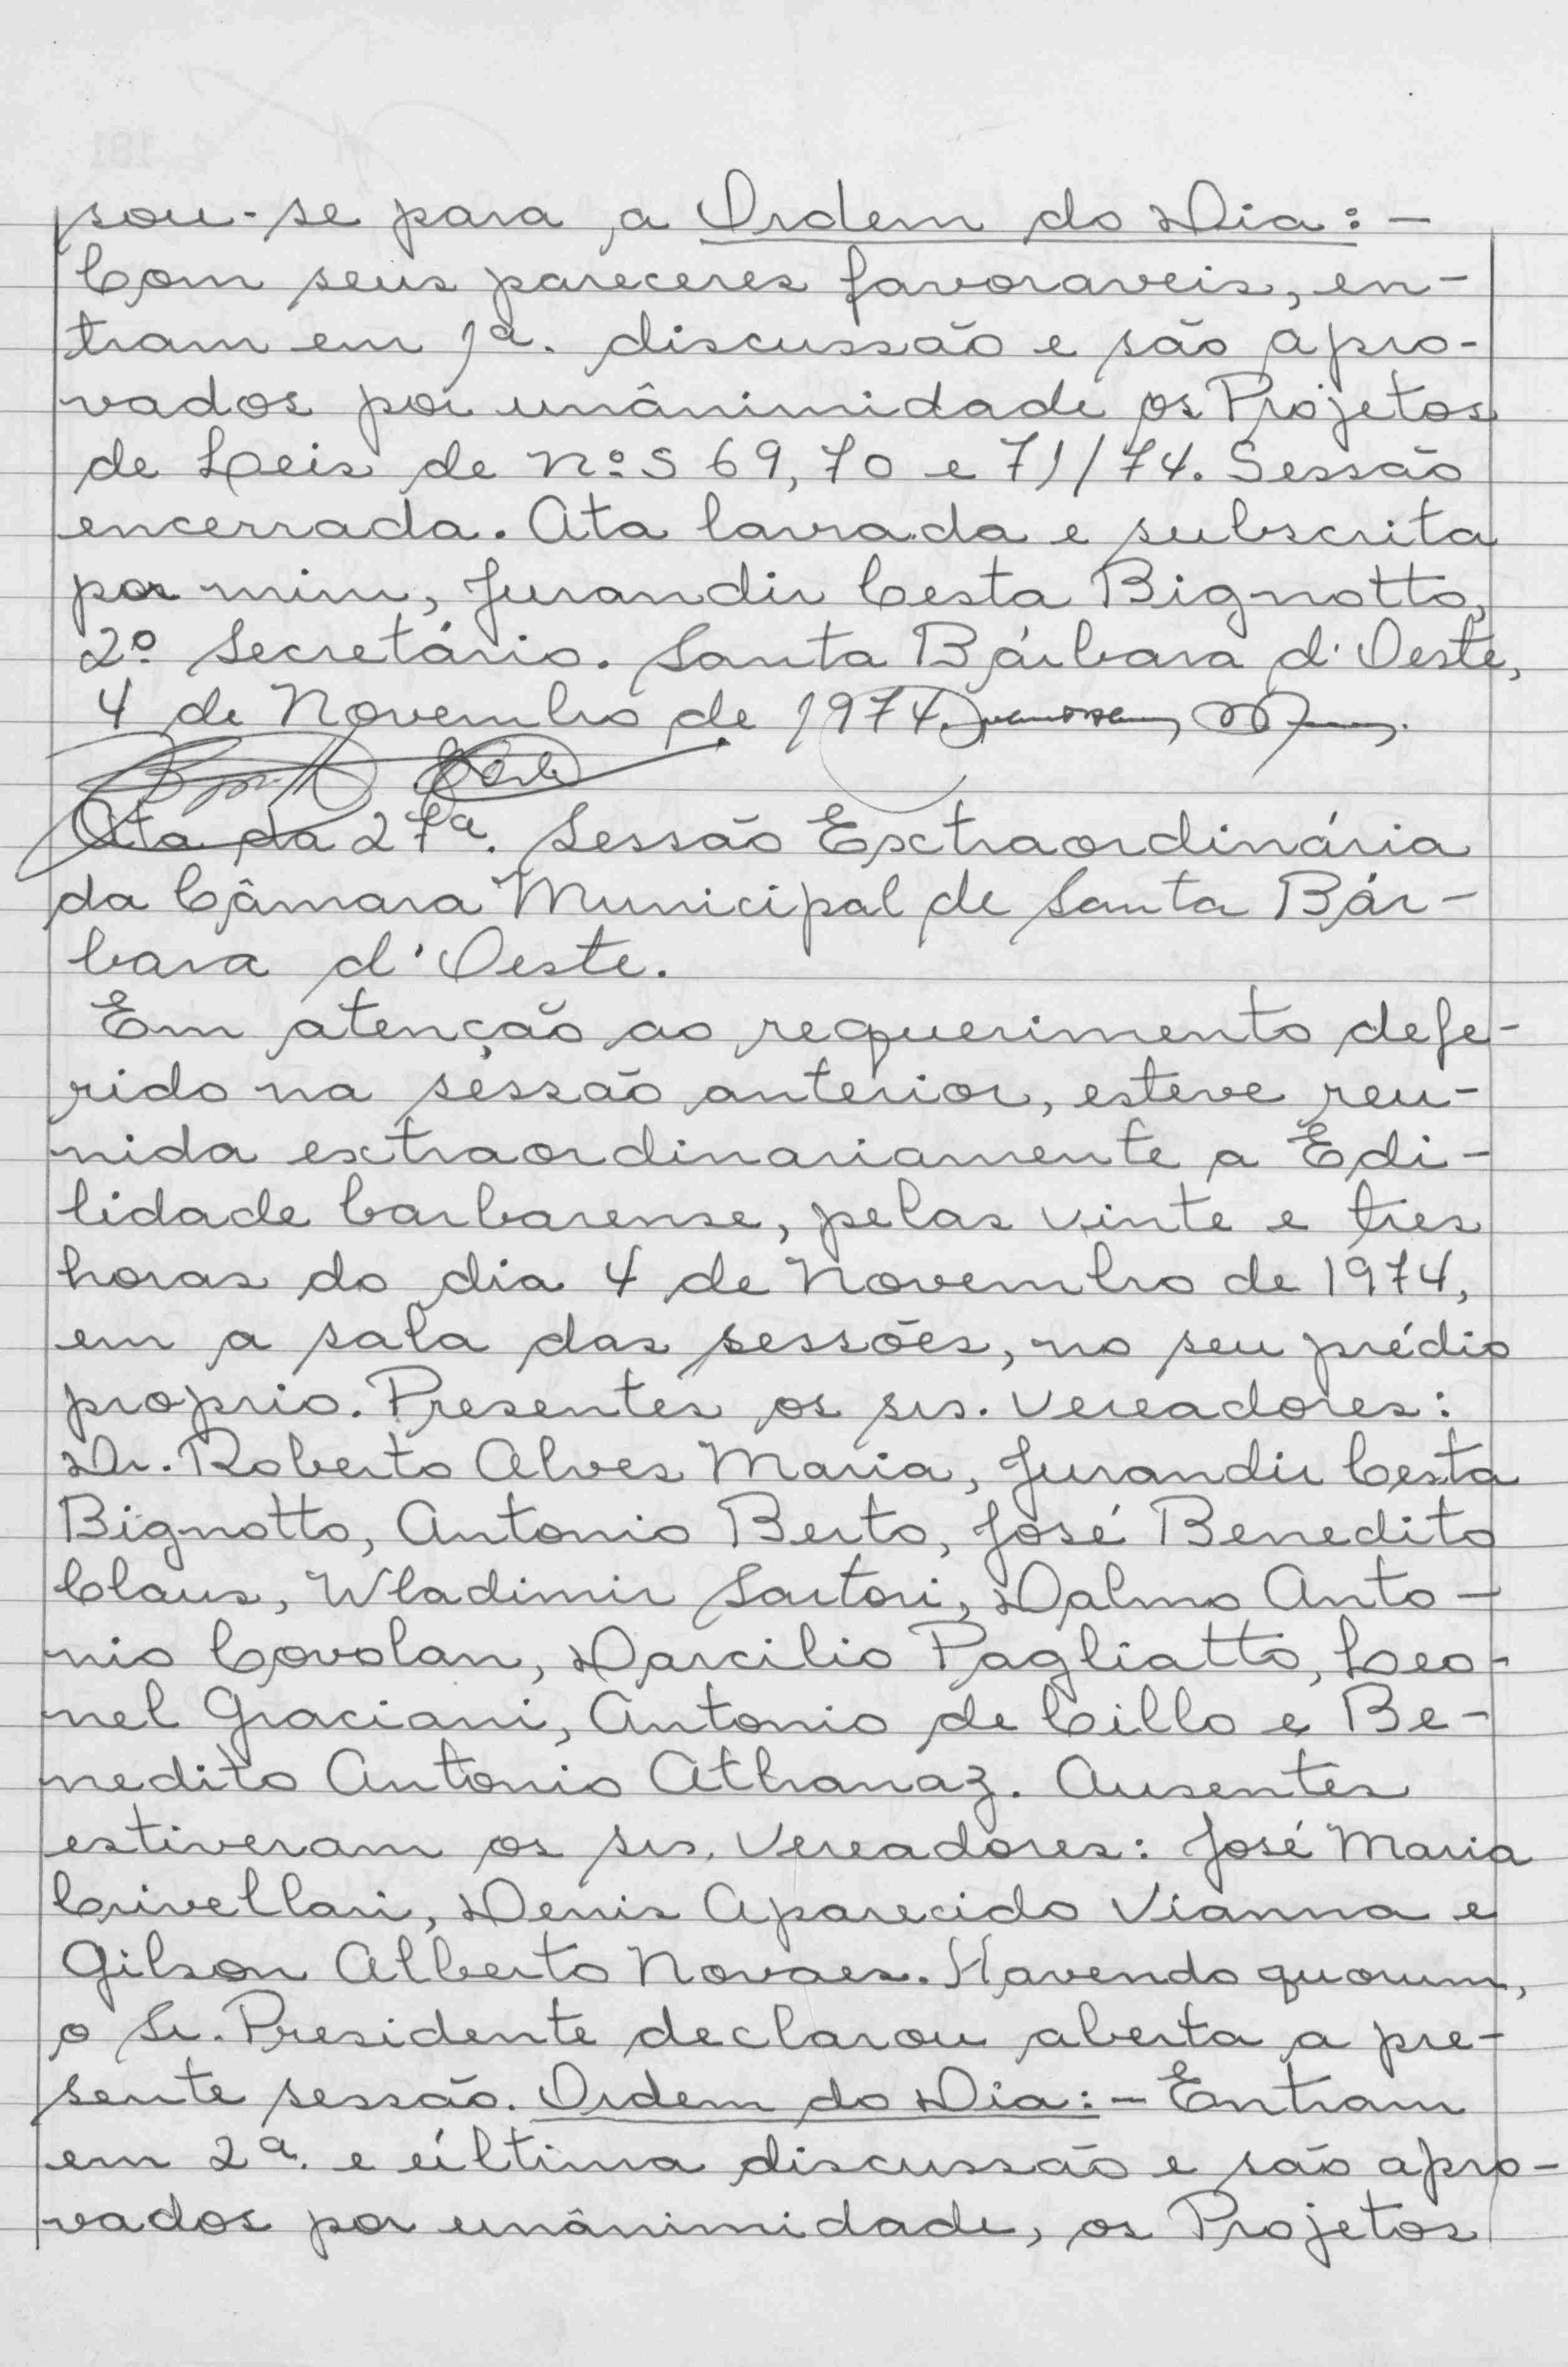 sou-se para a Ordem do Dia: -
Com seus pareceres favoraveis, en-
tram em 1ª. discussão e são apro-
vados por unânimidade os Projetos
de Leis de nºs 69, 70 e 71/74. Sessão
encerrada. Ata lavrada e subscrita
por mim, Jurandir Cesta Bignotto,
2º Secretário. Santa Bárbara d'Oeste,
4 de Novembro de 1974.
Ata da 27ª. Sessão Extraordinária
da Câmara Municipal de Santa Bár-
bara d'Oeste.
Em atenção ao requerimento defe-
rido na sessão anterior, esteve reu-
nida extraordinariamente a Edi-
lidade barbarense, pelas vinte e tres
horas do dia 4 de Novembro de 1974,
em a sala das sessões, no seu prédio
proprio. Presentes os srs. vereadores:
Dr. Roberto Alves Maria, Jurandir Cesta
Bignotto, Antonio Berto, José Benedito
Claus, Wladimir Sartori, Dalmo Anto-
nio Covolan, Darcilio Pagliatto, Leo-
nel Graciani, Antonio de Cillo e Be-
nedito Antonio Athanaz. Ausentes
estiveram os srs. vereadores: José Maria
Crivellari, Denis Aparecido Vianna e
Gilson Alberto Novaes. Havendo quorum,
o Sr. Presidente declarou aberta a pre-
sente sessão. Ordem do Dia: - Entram
em 2ª. e última discussão e são apro-
vados por unânimidade, os Projetos